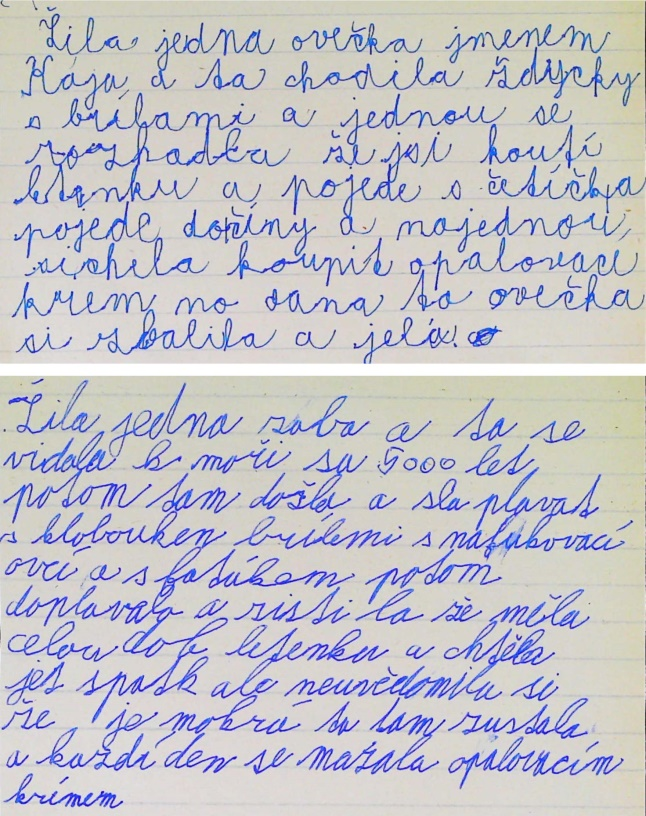 Žila jedna ovečka jmenem
Kája a ta chodila ždycky
s brílami a jednou se
rozhodla že jsi koutí
letenku a pojede s četíčka
pojede dočíny a najednou,
si chela koupit opalovací
krem no dana ta ovečka
si sbalila a jela.
Žila jedna zaba a ta se
vidala k moři sa 5000 let
potom tam došla a sla plavat
s klobouken brílemi s nafukovací
ovcí a s foťákem potom
doplavala a zisti la že měla
celou dob letenku a chtěla
jet spatk ale neuvědomila si
že je mokrá ta tam zustala
a každí den se mazala opalovacím
krémem